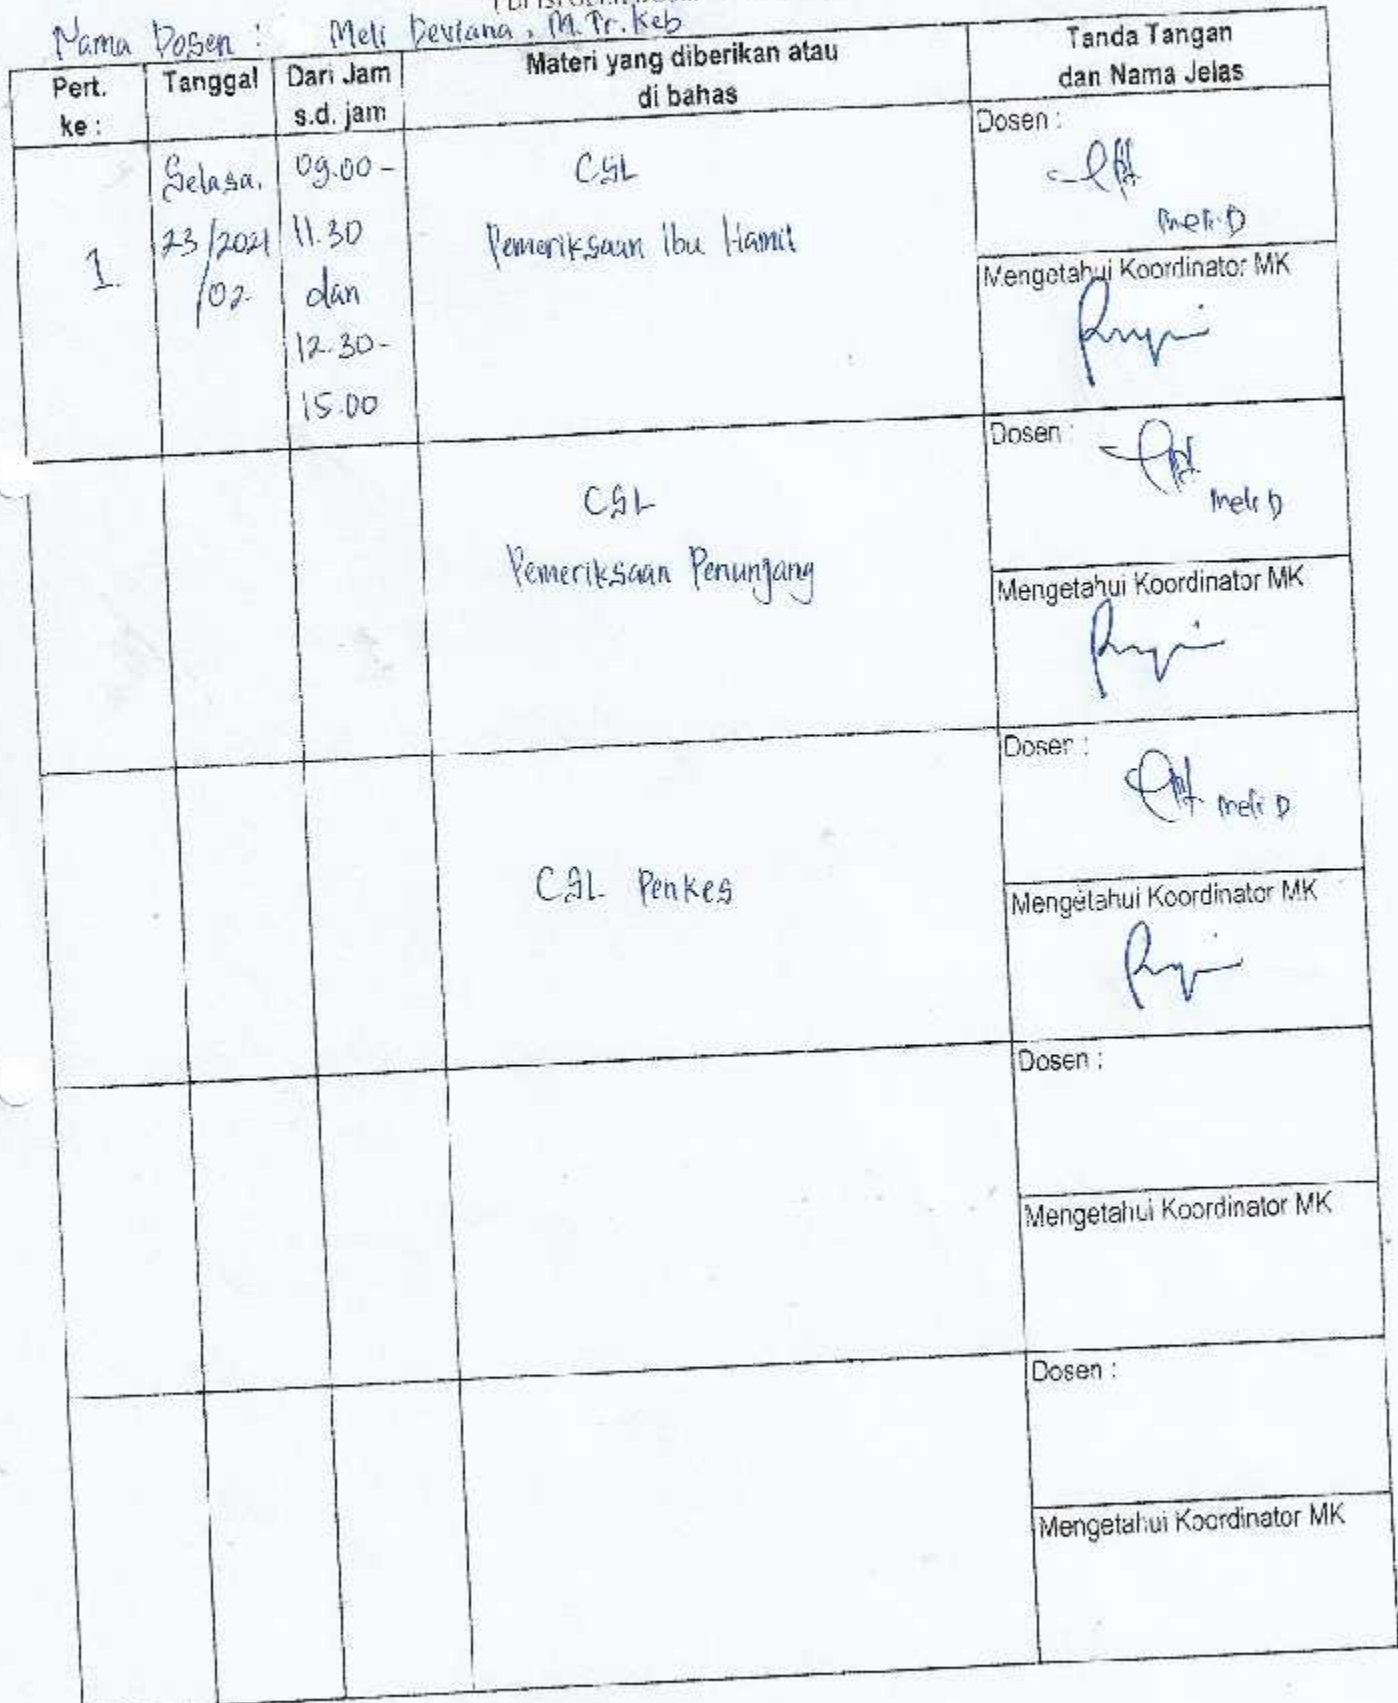 Nama Dosen : Meli Deviana, M.Tr.Keb
Pert. ke :
Tanggal
Dari Jam s.d. jam
Materi yang diberikan atau di bahas
Tanda Tangan dan Nama Jelas
1.
Selasa,
23/2021
/02
09.00 -
11.30
dan
12.30 -
15.00
CSL
Pemeriksaan Ibu Hamil
Dosen :
Meli D
Mengetahui Koordinator MK
CSL
Pemeriksaan Penunjang
Dosen :
Meli D
Mengetahui Koordinator MK
CSL Penkes
Dosen :
Meli D
Mengetahui Koordinator MK
Dosen :
Mengetahui Koordinator MK
Dosen :
Mengetahui Koordinator MK